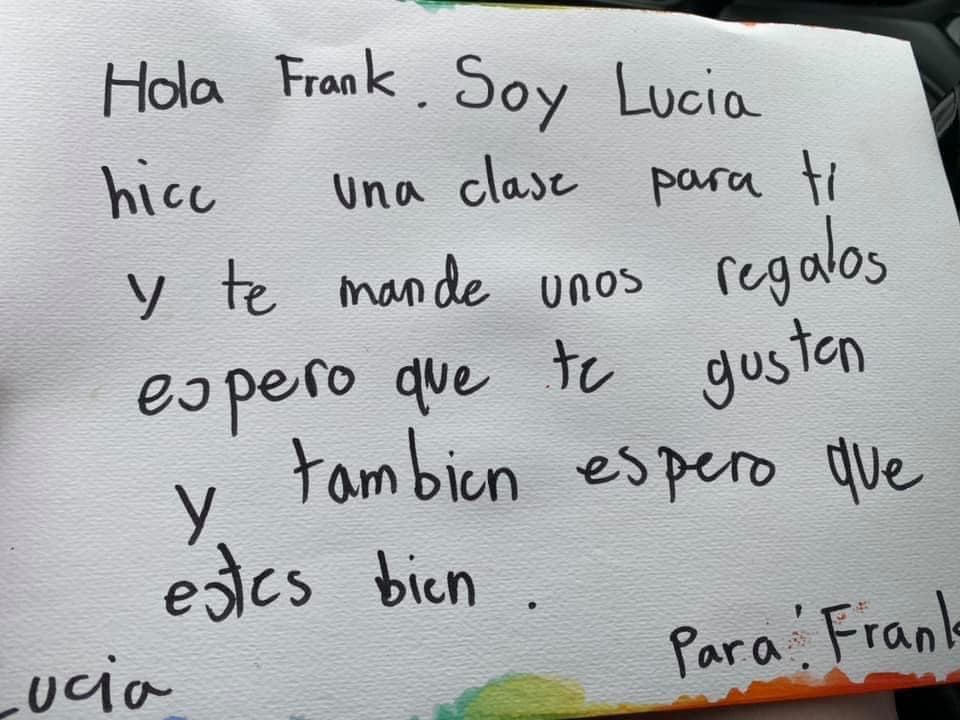 Hola Frank. Soy Lucia
hice una clase para ti
y te mande unos regalos
espero que te gusten
y tambien espero que
estes bien.
Para: Frank
Lucia